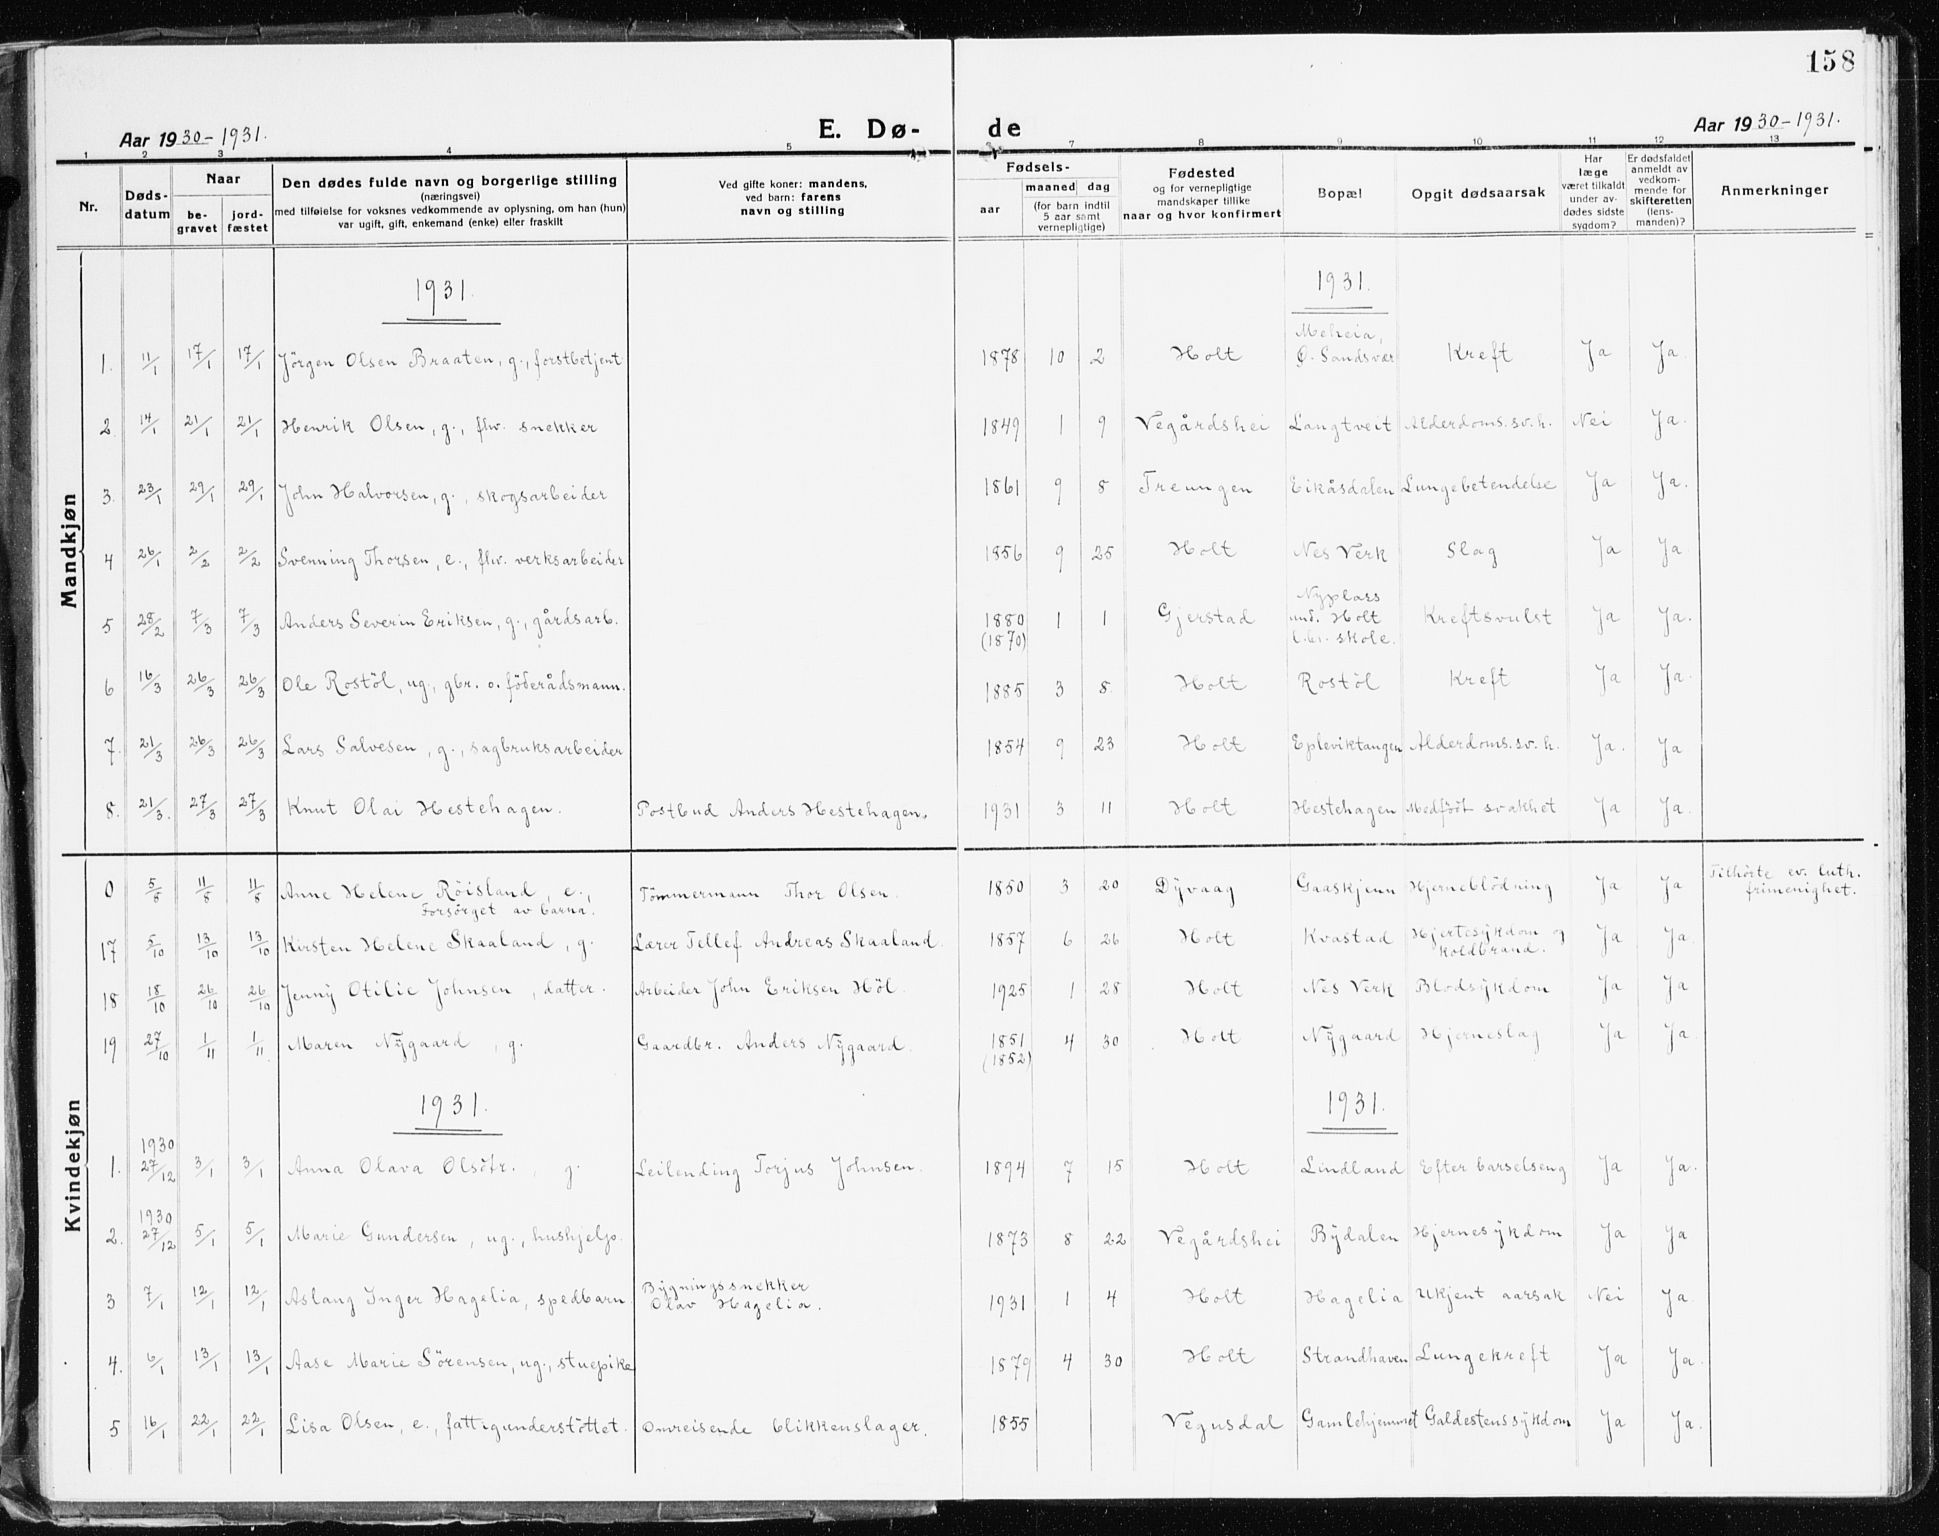 158
Aar 1930-1931. E. Dø- de Aar 1930-1931.
1 2 3 4 5 7 8 9 10 11 12 13
Nr. | Døds-datum | Naar be-gravet | jord-fæstet | Den dødes fulde navn og borgerlige stilling (næringsvei) med tilføielse for voksnes vedkommende av oplysning, om han (hun) var ugift, gift, enkemand (enke) eller fraskilt | Ved gifte koner: mandens, ved barn: farens navn og stilling | Fødsels- aar | maaned | dag (for barn indtil 5 aar samt vernepligtige) | Fødested og for vernepligtige mandskaper tillike naar og hvor konfirmert | Bopæl | Opgit dødsaarsak | Har læge været tilkaldt under av-dødes sidste sygdom? | Er dødsfaldet anmeldt av vedkom-mende for skifteretten (lens-manden)? | Anmerkninger
Mandkjøn
1931. 1931.
1. 11/1 17/1 17/1 Jörgen Olsen Braaten, g., forstbetjent 1878 10 2 Holt Meheia, Ö. Sandsvær Kreft Ja Ja.
2. 14/1 21/1 21/1 Henrik Olsen, g., fhv. snekker 1849 1 9 Vegårdshei Langtveit Alderdoms.sv.h. Nei Ja.
3. 23/1 29/1 29/1 John Halvorsen, g., skogsarbeider 1861 9 8 Treungen Eikåsdalen Lungebetendelse Ja Ja.
4 26/1 2/2 2/2 Svenning Thorsen, e., fhv. verksarbeider 1856 9 25 Holt Nes Verk Slag Ja Ja
5 28/2 7/3 7/3 Anders Severin Eriksen, g., gårdsarb. 1880 (1870) 1 1 Gjerstad Nyplass und. Holt l.br. skole. Kreftsvulst Ja Ja.
6 16/3 26/3 26/3 Ole Rostöl, ug., gbr. o. föderådsmann. 1885 3 8. Holt Rostöl Kreft Ja Ja.
7. 21/3 26/3 26/3 Lars Salvesen, g., sagbruksarbeider 1854 9 23 Holt Epleviktangen Alderdoms.sv.h. Ja. Ja
8. 21/3. 27/3 27/3 Knut Olai Hestehagen. Postbud Anders Hestehagen. 1931 3 11 Holt Hestehagen Medfödt svakhet Ja Ja.
Kvindekjøn
0 5/8 11/8 11/8 Anne Helene Röisland, e., Forsörget av barna. Tömmermann Thor Olsen. 1850 3 20 Dÿvaag Gaaskjenn Hjerneblödning Ja Ja Tilhörte ev. luth. frimenighet.
17 5/10 13/10 13/10 Kirsten Helene Skaaland, g. Lærer Tellef Andreas Skaaland. 1857 6 26 Holt Kvastad Hjertesÿkdom og koldbrand. Ja Ja.
18 18/10 26/10 26/10 Jenny Otilie Johnsen, datter. Arbeider John Eriksen Höl. 1925 1 28 Holt Nes Verk Blodsÿkdom Ja Ja
19 27/10 1/11 1/11 Maren Nÿgaard, g. Gaardbr. Anders Nÿgaard. 1851 (1852) 4 30 Holt Nÿgaard Hjerneslag Ja Ja.
1931. 1931.
1. 1930 27/12 3/1 3/1 Anna Olava Olsdtr., g. Leilending Torjus Johnsen. 1894 7 15 Holt Lindland Efter barselseng Ja Ja.
2. 1930 27/12 5/1 5/1 Marie Gundersen, ug., hushjelp. 1873 8 22 Vegårdshei Bÿdalen Hjernesÿkdom Ja Ja
3 7/1 12/1 12/1 Aslaug Inger Hagelia, spedbarn. Bÿgningssnekker Olav Hagelia. 1931 1 4 Holt Hagelia Ukjent aarsak Nei Ja.
4. 6/1 13/1 13/1 Aase Marie Sörensen, ug., stuepike 1879 4 30 Holt Strandhaven Lungekreft Ja Ja.
5 16/1 22/1 22/1 Lisa Olsen, e., fattigunderstöttet. Omreisende blikkenslager. 1855 Vegusdal Gamlehjemmet Galdestenssÿkdom Ja Ja.